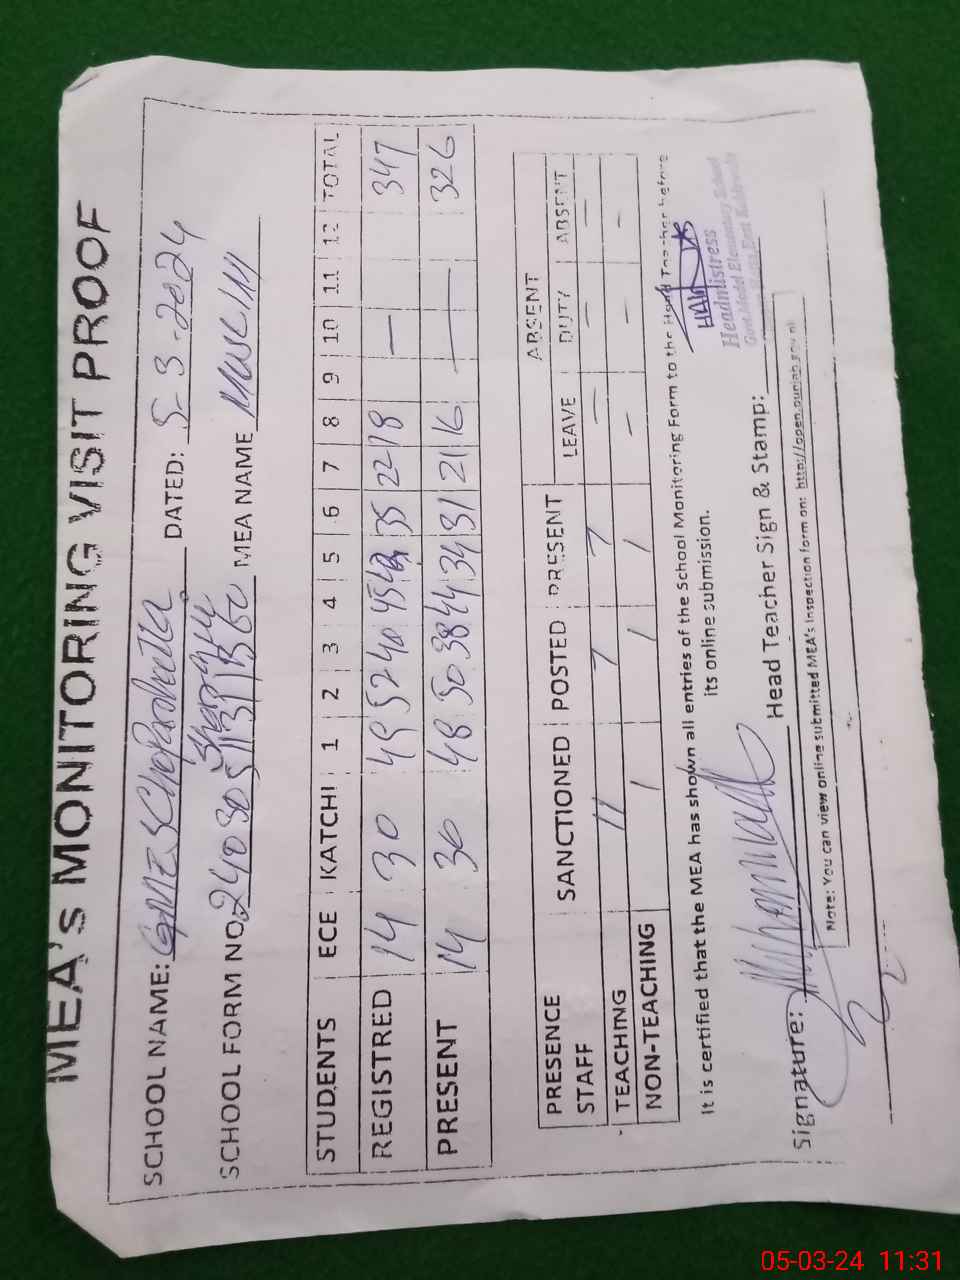 MEA's MONITORING VISIT PROOF
SCHOOL NAME: DATED: 5-3-2024
SCHOOL FORM NO. MEA NAME
STUDENTS ECE KATCHI 1 2 3 4 5 6 7 8 9 10 11 12 TOTAL
REGISTRED 14 30 49 52 40 45 42 35 22 18 — 347
PRESENT 14 30 48 50 38 44 34 31 21 16 — 326
ABSENT
PRESENCE SANCTIONED POSTED PRESENT LEAVE DUTY ABSENT
STAFF
TEACHING 11 7 7 — — —
NON-TEACHING 1 1 1 — — —
It is certified that the MEA has shown all entries of the School Monitoring Form to the Head Teacher before
its online submission.
Headmistress
Govt. Model Elementary School
Signature: Head Teacher Sign & Stamp:
Note: You can view online submitted MEA's inspection form on: http://open.punjab.gov.pk
05-03-24 11:31